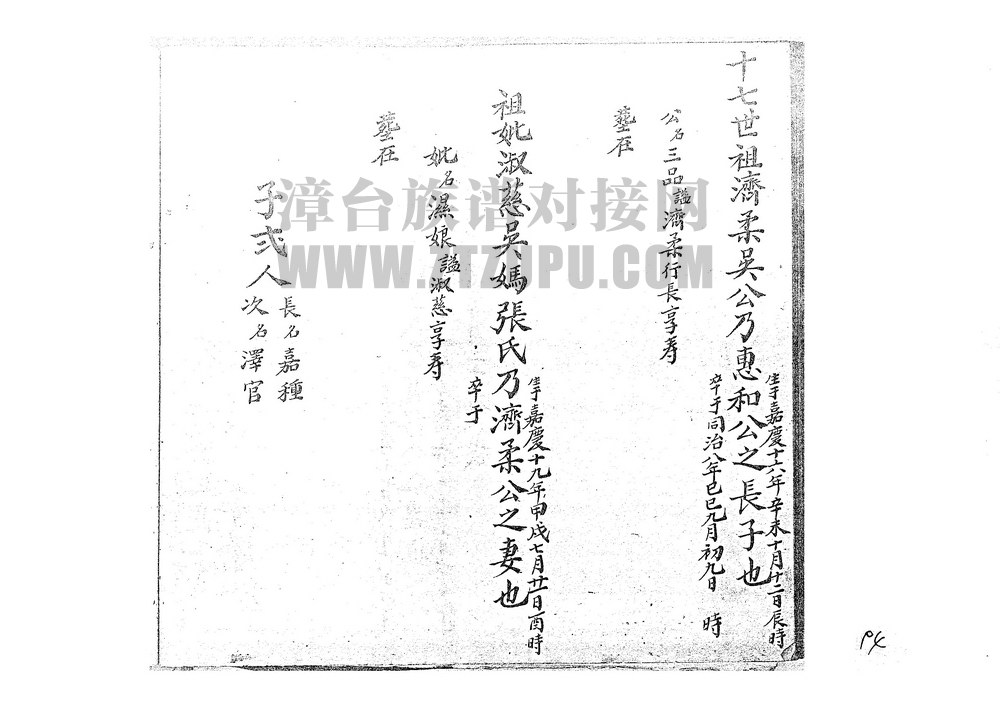 十七世祖濟柔吳公乃惠和公之長子也
生于嘉慶十六年辛未十月十二日辰時
卒于同治八年己巳九月初九日 時
公名三品諡濟柔行長享寿
塟在
祖妣淑慈吳媽張氏乃濟柔公之妻也
生于嘉慶十九年甲戌七月廿一日酉時
卒于
妣名濕娘諡淑慈享寿
塟在
子弍人
長名嘉種
次名澤官
漳台族谱对接网
WWW.ZTZUPU.COM
P4